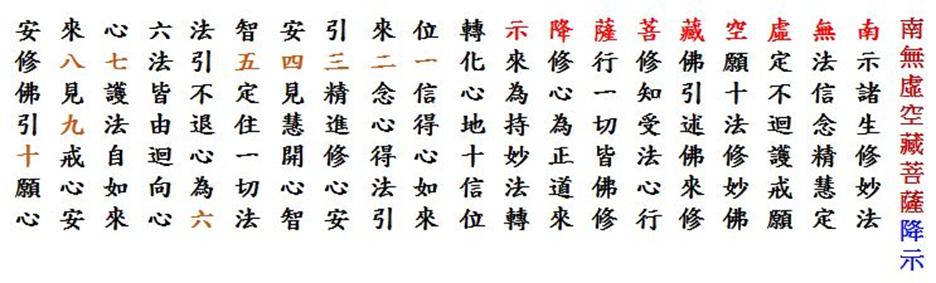 南無虛空藏菩薩降示
南示諸生修妙法
無法信念精慧定
虛定不迴護戒願
空願十法修妙佛
藏佛引述佛來修
菩修知受法心行
薩行一切皆佛修
降修心為正道來
示來為持妙法轉
轉化心地十信位
位一信得心如來
來二念心得法引
引三精進修心安
安四見慧開心智
智五定住一切法
法引不退心為六
六法皆由迴向心
心七護法自如來
來八見九戒心安
安修佛引十願心